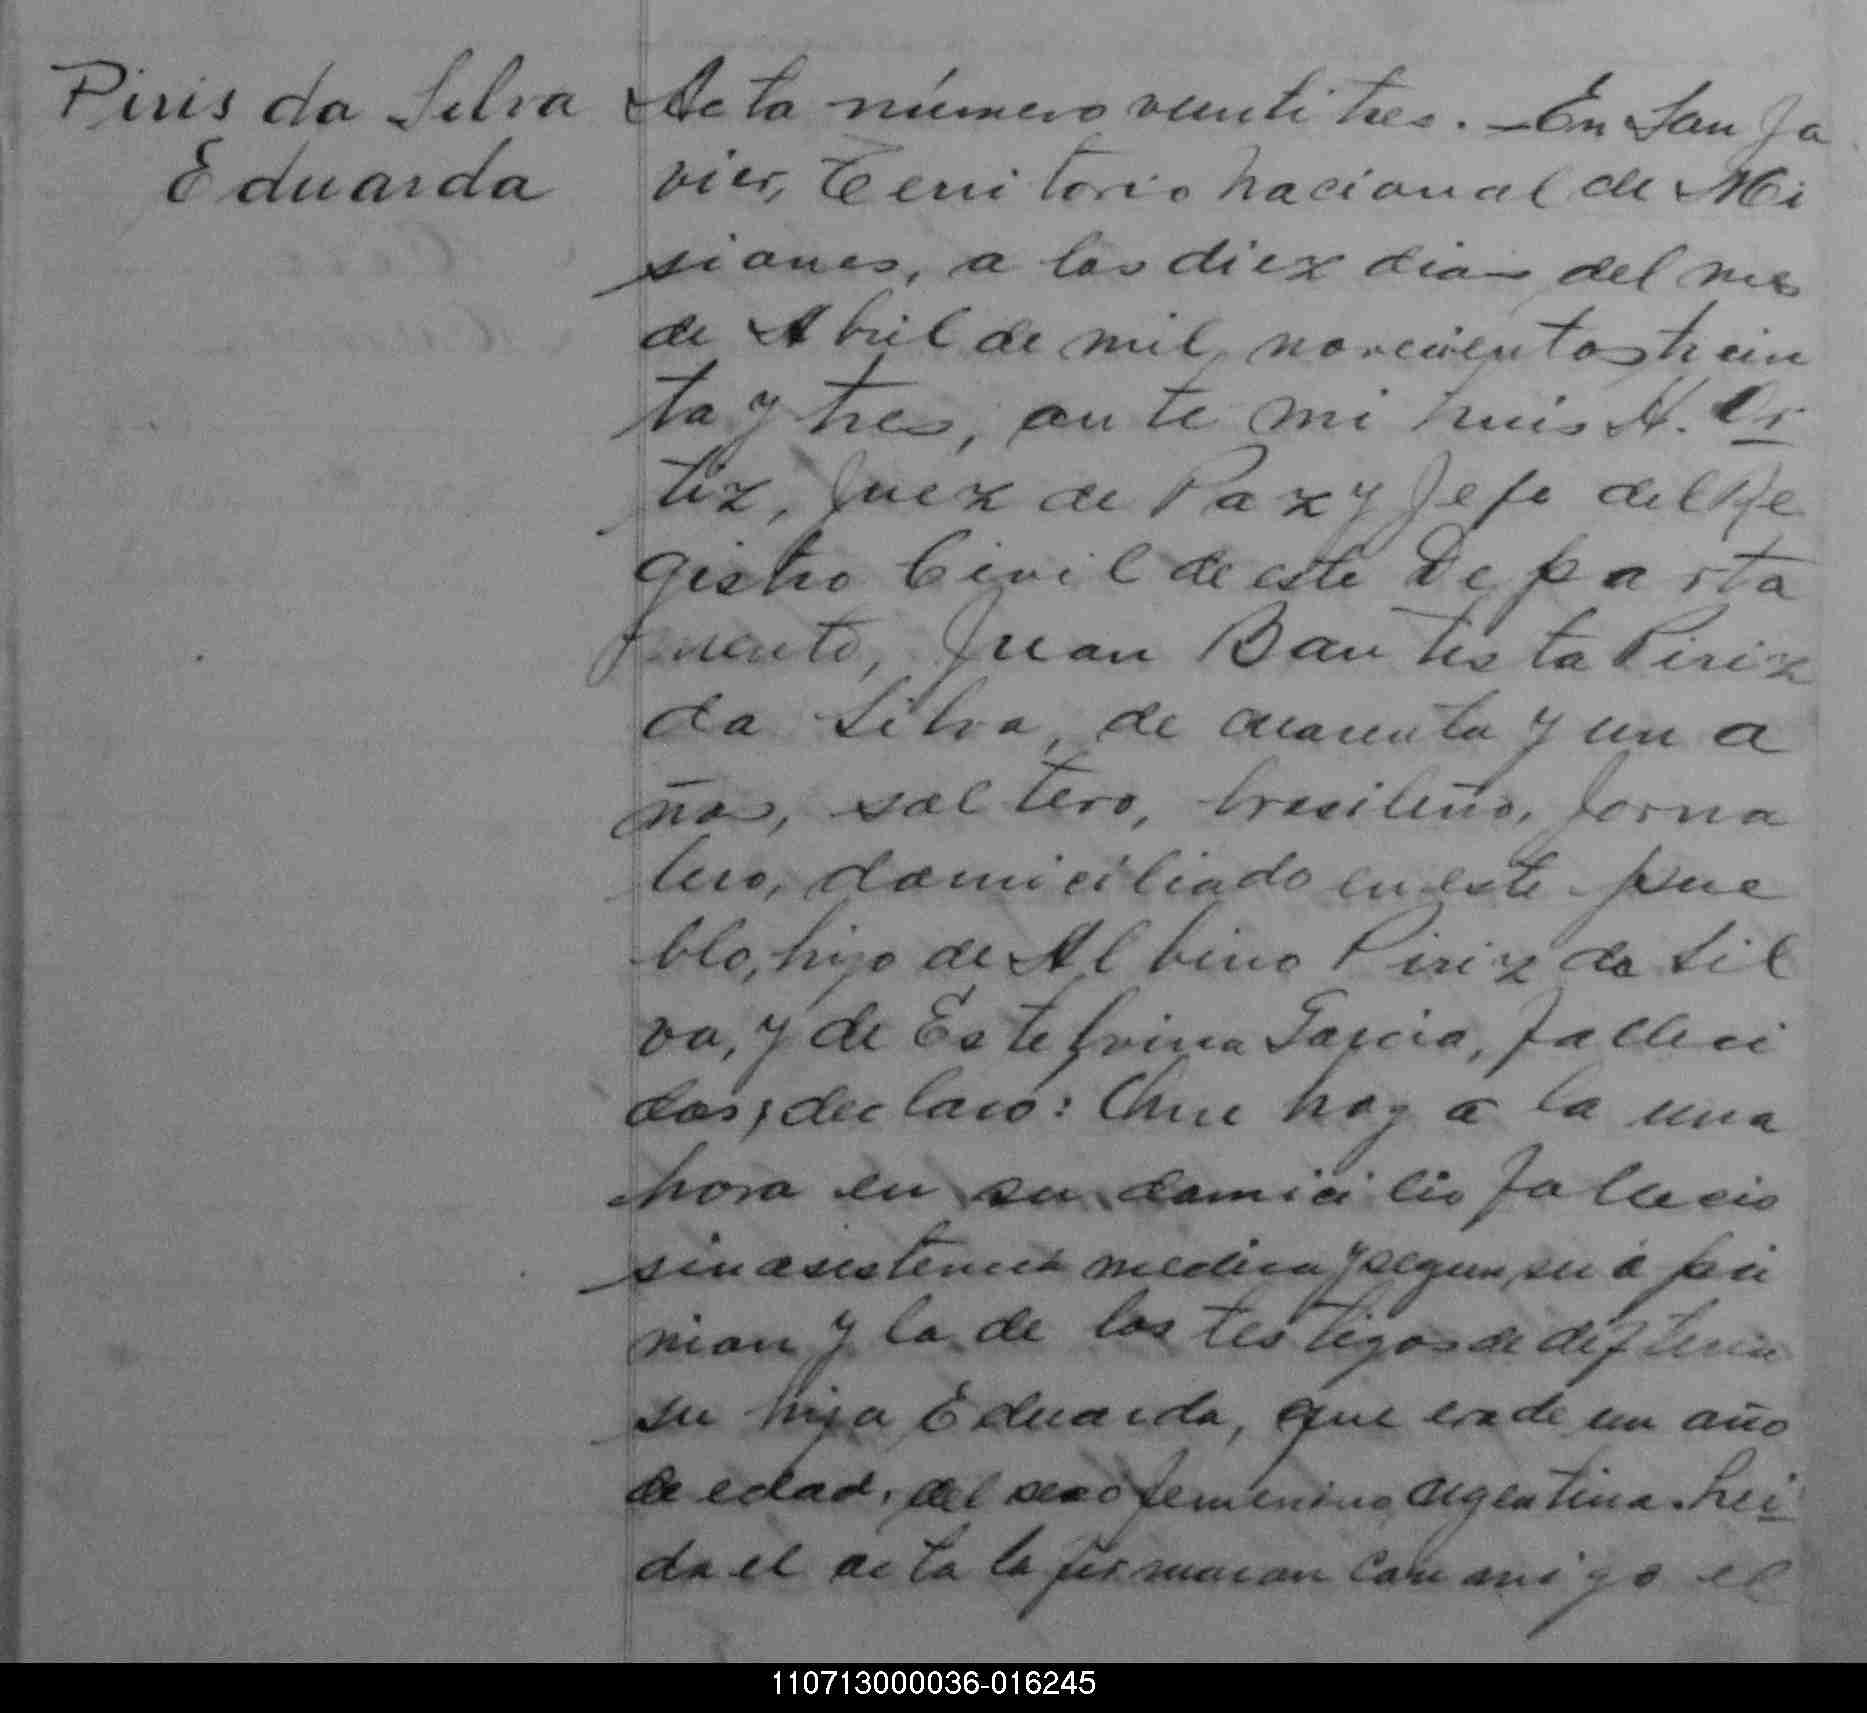 Piris da Silva
Eduarda
Acta número veintitres. - En San Ja
vier, Territorio Nacional de Mi
siones, a los diez dias del mes
de Abril de mil novecientos trein
ta y tres, ante mi Luis A. Or
tiz, Juez de Paz y Jefe del Re
gistro Civil de este Departa
mento, Juan Bautista Piriz
da Silva, de cuarenta y un a
ños, soltero, brasileño, jorna
lero, domiciliado en este pue
blo, hijo de Albino Piriz da Sil
va, y de Garcia, falleci
dos; declaro: Que hoy a la una
hora en su domicilio fallecio
sin asistencia medica y segun su opi
nion y la de los testigos de difteria
su hija Eduarda, que era de un año
de edad, del sexo femenino, argentina. Lei
da el acta la firmaron conmigo el
110713000036-016245